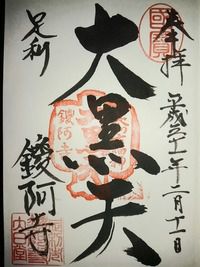 奉拝
平成三十一年二月十一日
大黒天
足利
鑁阿寺